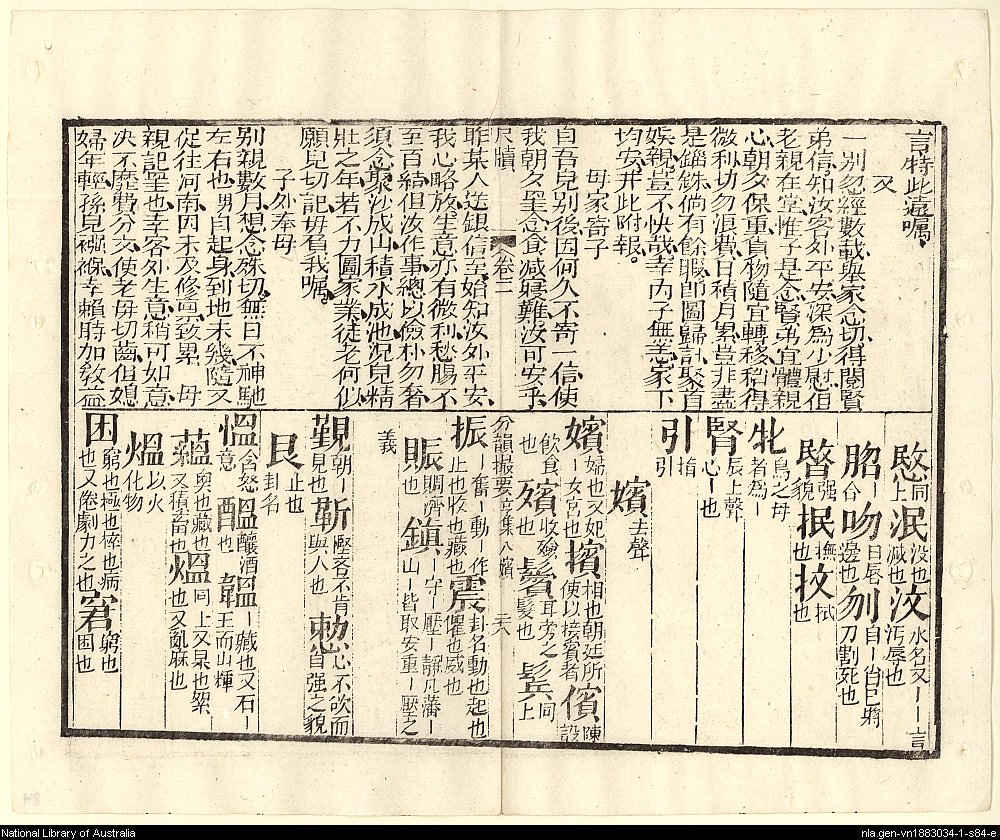 言特此遠囑
又
一別忽經數載與家念切得閱賢
弟信知汝客外平安深為少慰但
老親在堂惟子是念賢弟宜體親
心朝夕保重貨物隨宜轉移稍得
微利切勿浪費日積月累豈非盡
是錙銖倘有餘暇即圖歸計聚首
娛親豈不快哉幸內子無恙家下
均安并此附報。
母家寄子
自吾兒別後因何久不寄一信使
我朝夕呈念食減寢難汝可安乎
尺牘 卷三
昨某人送銀信至始知汝外平安
我心略放生意亦有微利愁腸不
至百結但汝作事總以儉朴勿奢
須念聚沙成山積水成池況兒精
壯之年若不力圖家業徒老何似
願兒切記毋負我囑
子外奉母
別親數月想念殊切無日不神馳
左右也男自起身到地未幾隨又
促往河南因未及修稟致累 母
親記望也幸客外生意稍可如意
決不靡費分文使老母切齒但媳
婦年輕孫兒襁褓幸賴時加教益
愍同上 泯没也滅也 汶水名又丨丨言汚辱也
脗丨合 吻口唇邊也 刎自丨台已將刀割死也
暋强貌 抿撫也 抆拭也
牝鳥之母者為丨
腎辰上聲心丨也
引指引
嬪去聲
嬪婦也又妃丨女宮也 擯相也朝廷所使以接賓者 儐陳設
飲食也 殯收殮也 鬢耳旁之髮也 髩同上
分韻撮要字集八嬪 二六
振丨奮丨動丨作止也收也藏也 震卦名動也起也懼也威也
賑賙濟也 鎮丨守丨壓丨靜凡藩丨山丨皆取安重丨壓之
義
覲朝丨見也 靳慳吝不肯與人也 憖心不欲而自强之貌
艮止也卦名
慍含怒意 醞釀酒也 韞丨藏也又石丨玉而山煇
蘊奧也藏也又積蓄也 熅同上又杲也絮也又亂麻也
熅以火化物
困窮也極也悴也病也又倦劇力之也 窘窮也困也
National Library of Australia
nla.gen-vn1883034-1-s84-e